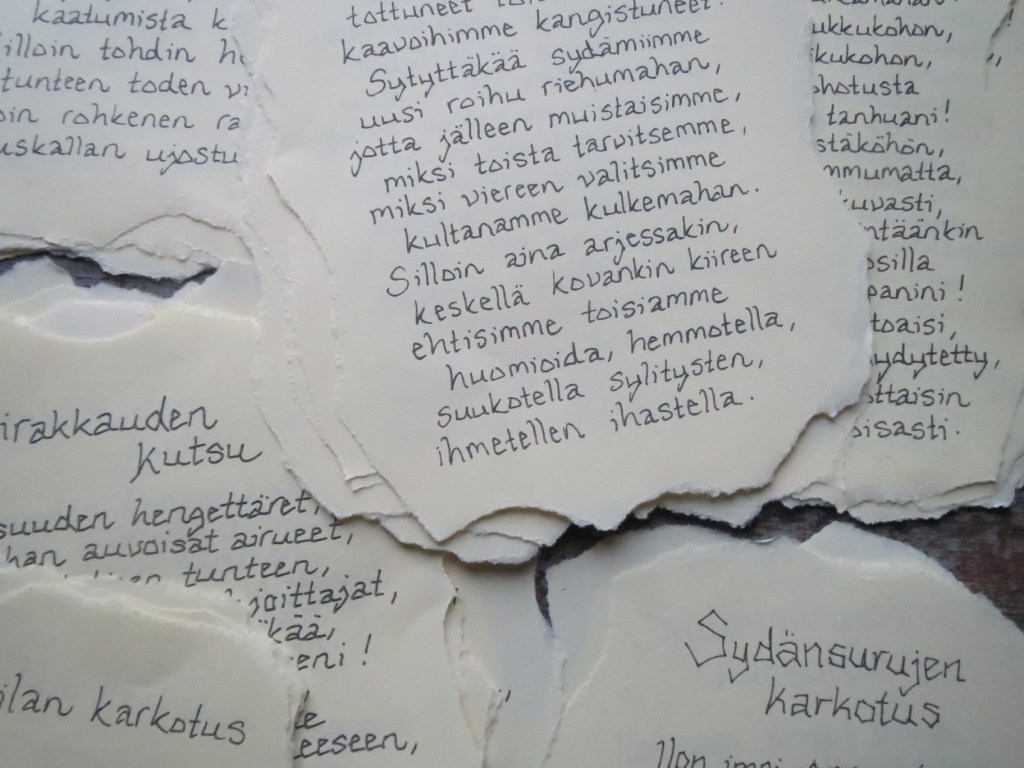 kaatumista
tohdin
tunteen toden
rohkenen
ujostu
tottuneet
kaavoihimme kangistuneet.
Sytyttäkää sydämiimme
uusi roihu riehumahan,
jotta jälleen muistaisimme,
miksi toista tarvitsemme,
miksi viereen valitsimme
kultanamme kulkemahan.
Silloin aina arjessakin,
keskellä kovankin kiireen
ehtisimme toisiamme
huomioida, hemmotella,
suukotella sylitysten,
ihmetellen ihastella.
ukkukohon,
kukohon,
hotusta
tanhuani!
stäköhön,
mmumatta,
kuvasti,
ntäänkin
osilla
panini!
toaisi,
ydytetty,
ttaisin
sisasti.
irakkauden
kutsu
suuden hengettäret,
han auvoisat airueet,
tunteen,
joittajat,
kää,
eni!
le
eeseen,
ilan karkotus
Sydänsurujen
karkotus